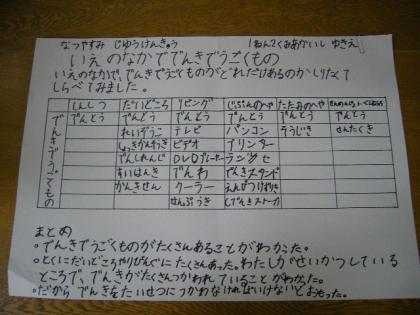 なつやすみ じゆうけんきゅう
1ねん2くみ あかいし ゆきえ
いえのなかででんきでうごくもの
いえのなかで、でんきでうごくものがどれだけあるのかしりたくて
しらべてみました。
しんしつ だいどころ リビング じぶんのへや たたみのへや
でんきでうごくもの
でんとう でんとう でんとう でんとう でんとう でんとう
れいぞうこ テレビ パソコン そうじき せんたくき
しょっきかんそうき ビデオ プリンター
でんしれんじ DVDプレーヤー ラジカセ
すいはんき でんわ でんきスタンド
かんきせん クーラー えんぴつけずり
せんぷうき でんきストーブ
まとめ
○でんきでうごくものがたくさんあることがわかった。
○とくにだいどころやりびんぐにたくさんあった。わたしがせいかつしている
ところで、でんきがたくさんつかわれていることがわかった。
○だから でんきをたいせつにつかわなければいけないとおもった。